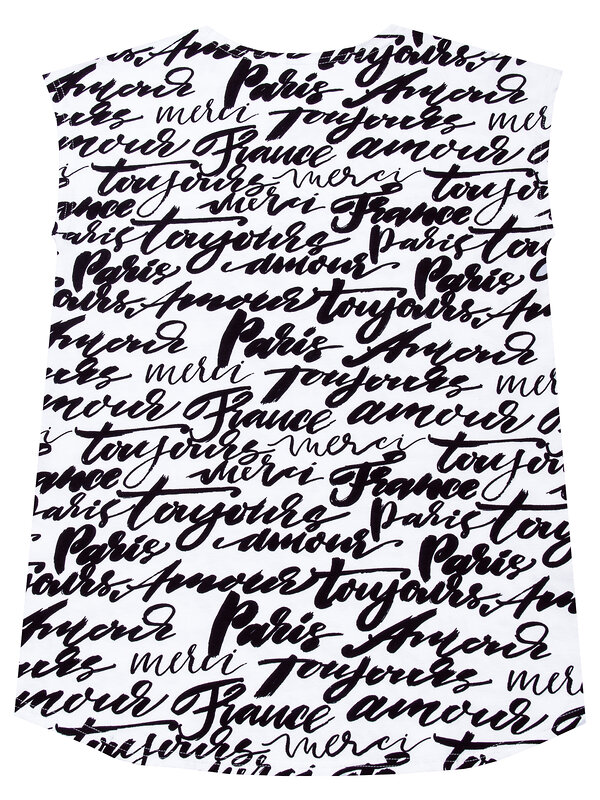 toujours, Amour toujours, Amour
Amour Paris Amour
merci Toujours mer
amour France amour
toujours merci
merci France
Paris toujours Paris toujours
Paris amour Paris
ours, Amour toujours, Amour
Amour Paris Amour
merci Toujours mer
amour France amour
toujours merci toujours
merci France
Paris toujours Paris toujours
Paris amour Paris
ours, Amour toujours, Amou
Amour Paris Amour
merci Toujours merci
amour France amour
toujours merci